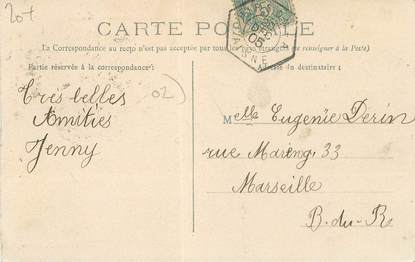 20+
CARTE POSTALE
La Correspondance au recto n'est pas acceptée par tous les pays étrangers (Se renseigner à la Poste)
Partie réservée à la correspondance:
Adresse du destinataire:
02)
Très belles
Amitiés
Jenny
Melle Eugenie Derin
rue Mareng. 33
Marseille
B. du. R